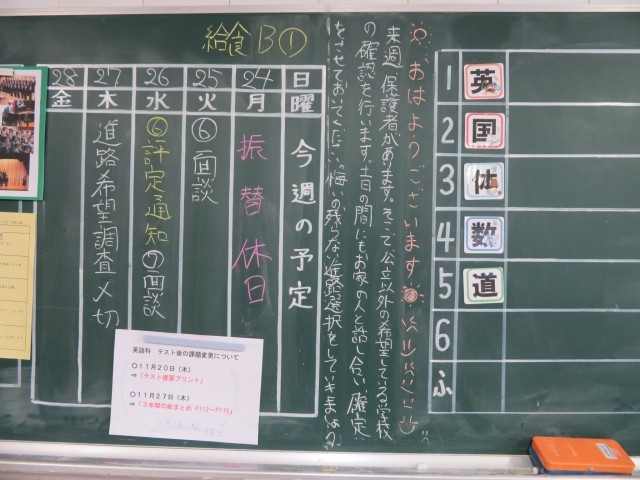 給食 B①
おはようございます
来週、保護者があります。そこで公立以外の希望している学校
の確認を行います。土日の間にもお家の人と話し合い、確定
をさせておいてください。悔いの残らない進路選択をしていきましょう
今週の予定
日 曜
24 月 振替休日
25 火 ⑥面談
26 水 ⑥評定通知の面談
27 木 進路希望調査〆切
28 金
1 英
2 国
3 体
4 数
5 道
6
ふ
英語科 テスト後の課題変更について
〇11月20日(木)
⇒「テスト後習プリント」
〇11月27日(木)
⇒「3年間の総まとめ P112〜P115」